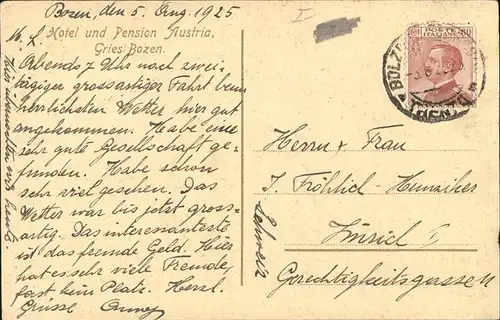 Bozen, den 5. Aug. 1925
M. L.
Hotel und Pension Austria,
Gries/Bozen.
Abends 7 Uhr nach zwei-
tägiger grossartiger Fahrt beim
herrlichsten Wetter hier gut
angekommen. Habe eine
sehr gute Gesellschaft ge-
funden. Habe schon
sehr viel gesehen. Das
Wetter war bis jetzt gross-
artig. Das interessanteste
ist das fremde Geld. Hier
hat es sehr viele Fremde,
fast kein Platz. Herzl.
Grüsse
Hier übernachten wir heute
I
BOLZ
TREN
60
Herrn & Frau
J. Fröhlich-Hunziker
Zürich I
Gerechtigkeitsgasse 4
Schweiz